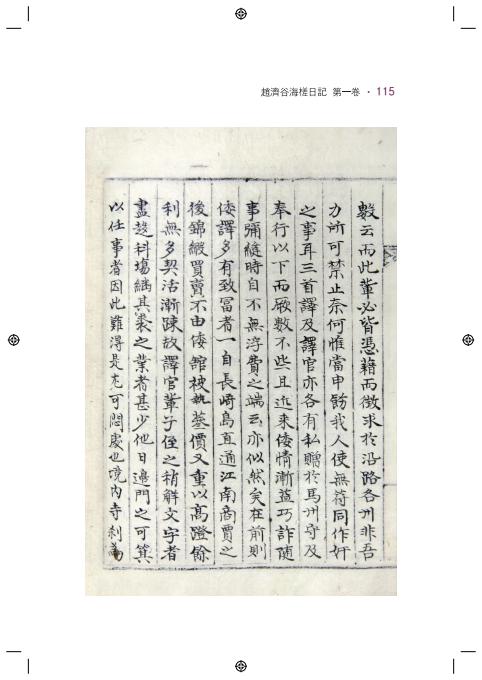 趙濟谷海槎日記 第一卷 · 115
數云而此輩必皆憑藉而徵求於沿路各州非吾
力所可禁止奈何惟當申飭我人使無符同作奸
之事耳三首譯及譯官亦各有私贈於馬州守及
奉行以下而厥數不些且近來倭情漸益巧詐隨
事彌縫時自不無浮費之端云亦似然矣在前則
倭譯多有致富者一自長崎島直通江南商賈之
後錦緞買賣不由倭館被執蔘價又重以高蹬餘
利無多契活漸踈故譯官輩子侄之稍解文字者
盡趍科塲繼其裘之業者甚少他日邊門之可箕
以任事者因此難得是尤可悶慮也境內寺刹